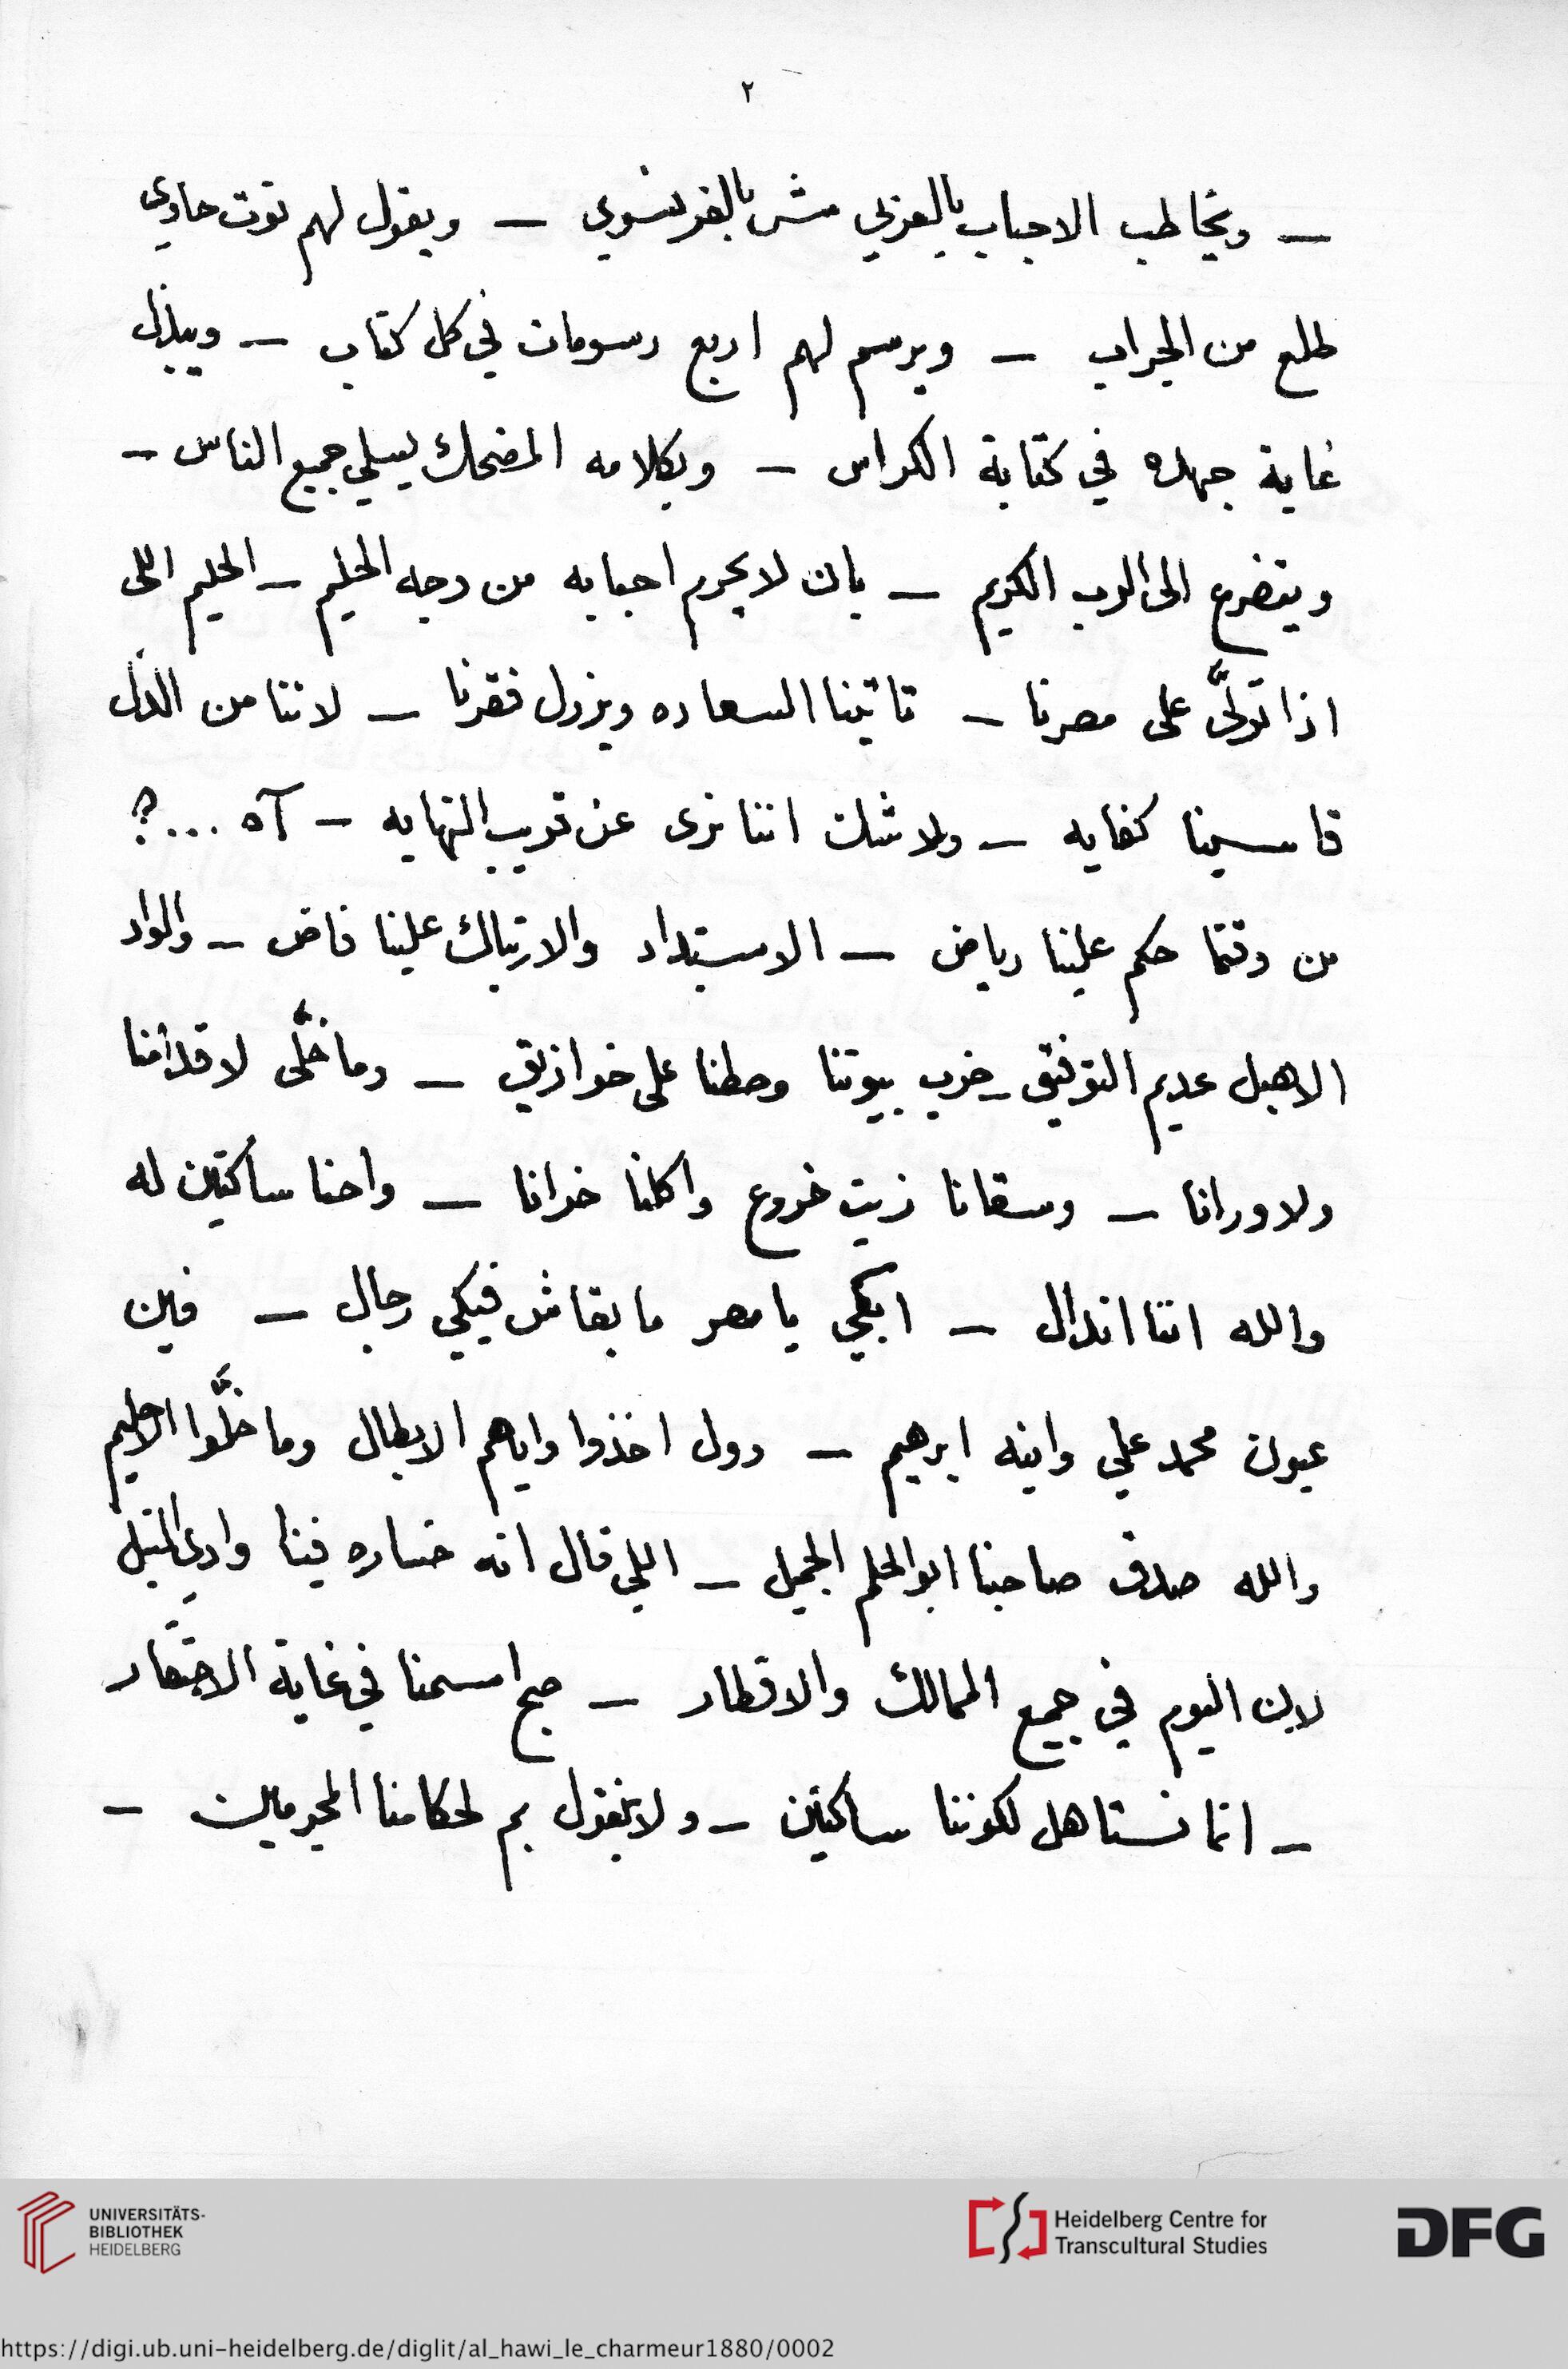 ٢
— ويخاطب الاحباب بالعربي مش بالفرنسوي — ويقول لهم توت حاوي
طلع من الجراب — ويرسم لهم اربع رسومات في كل كتاب — ويبذل
غاية جهده في كتابة الكراس — وبكلامه المضحك يسلي جميع الناس —
ويتضرع الى الرب الكريم — بان لا يحرم احبابه من وجه الحليم — الحليم اللى
اذا تولَّى على مصرنا — تاتينا السعاده ويزول فقرنا — لاننا من الذل
قاسينا كفايه — ولا شك اننا نرى عن قريب النهايه — آه ...؟
من وقتما حكم علينا رياض — الاستبداد والارتباك علينا فاض — والواد
الاهبل عديم التوفيق — خرب بيوتنا وحطنا على خوازيق — وما خلَّى لا قدامنا
ولا ورانا — وسقانا زيت خروع واكلنا خرانا — واحنا ساكتين له
والله اننا اندال — ابكي يا مصر ما بقاش فيكي رجال — فين
عيون محمد علي وابنه ابرهيم — دول اخذوا واياهم الابطال وما خلَّوا الا
والله صدق صاحبنا ابو الحلم الجميل — اللي قال انه خساره فينا وادي النيل
لان اليوم في جميع الممالك والاقطار — صبح اسمنا في غاية الاحتقار
— انما نستاهل لكوننا ساكتين — ولا بنقول بم لحكامنا المجرمين —
UNIVERSITÄTS-
BIBLIOTHEK
HEIDELBERG
Heidelberg Centre for
Transcultural Studies
DFG
https://digi.ub.uni-heidelberg.de/diglit/al_hawi_le_charmeur1880/0002